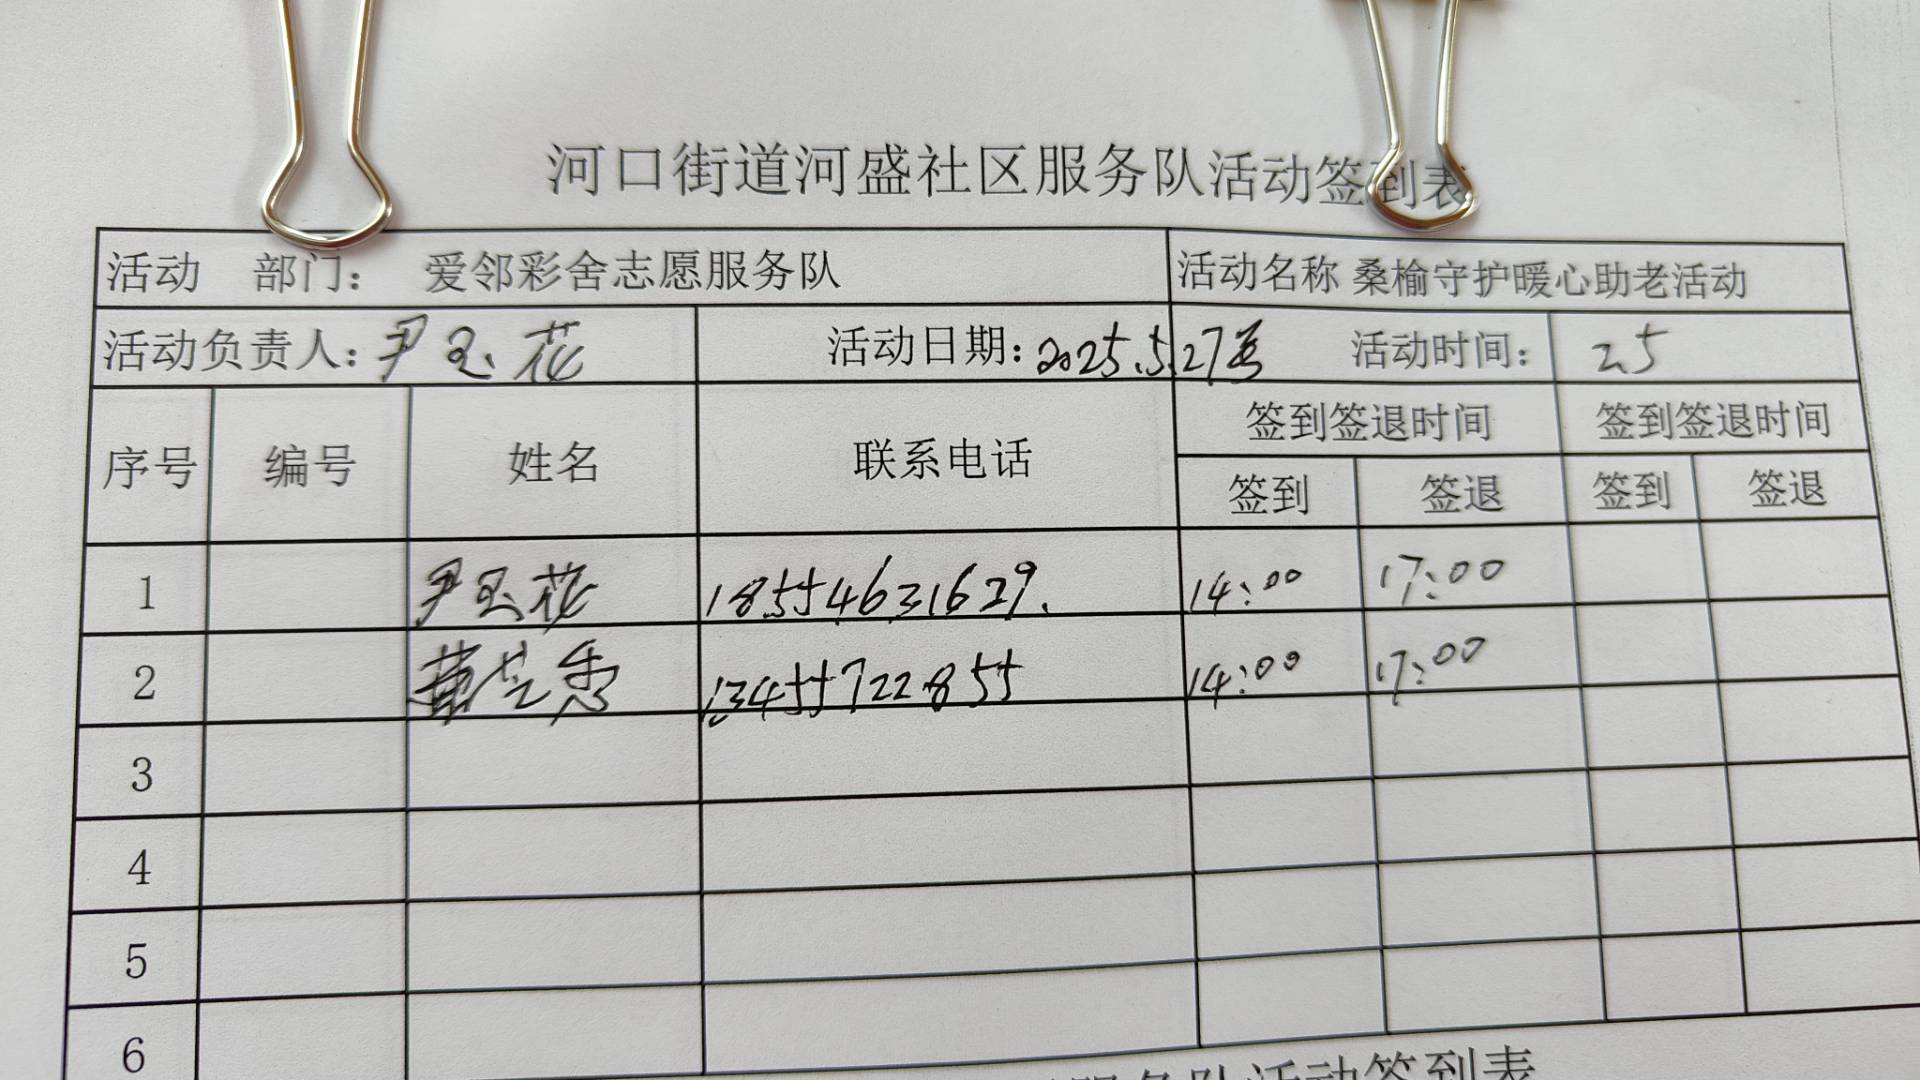 河口街道河盛社区服务队活动签到表
活动 部门： 爱邻彩舍志愿服务队 活动名称 桑榆守护暖心助老活动
活动负责人：尹玉花 活动日期：2025.5.27号 活动时间： 25
序号 编号 姓名 联系电话 签到签退时间 签到签退时间
签到 签退 签到 签退
1 尹玉花 18554631629. 14:00 17:00
2 13455722855 14:00 17:00
3
4
5
6
服务队活动签到表